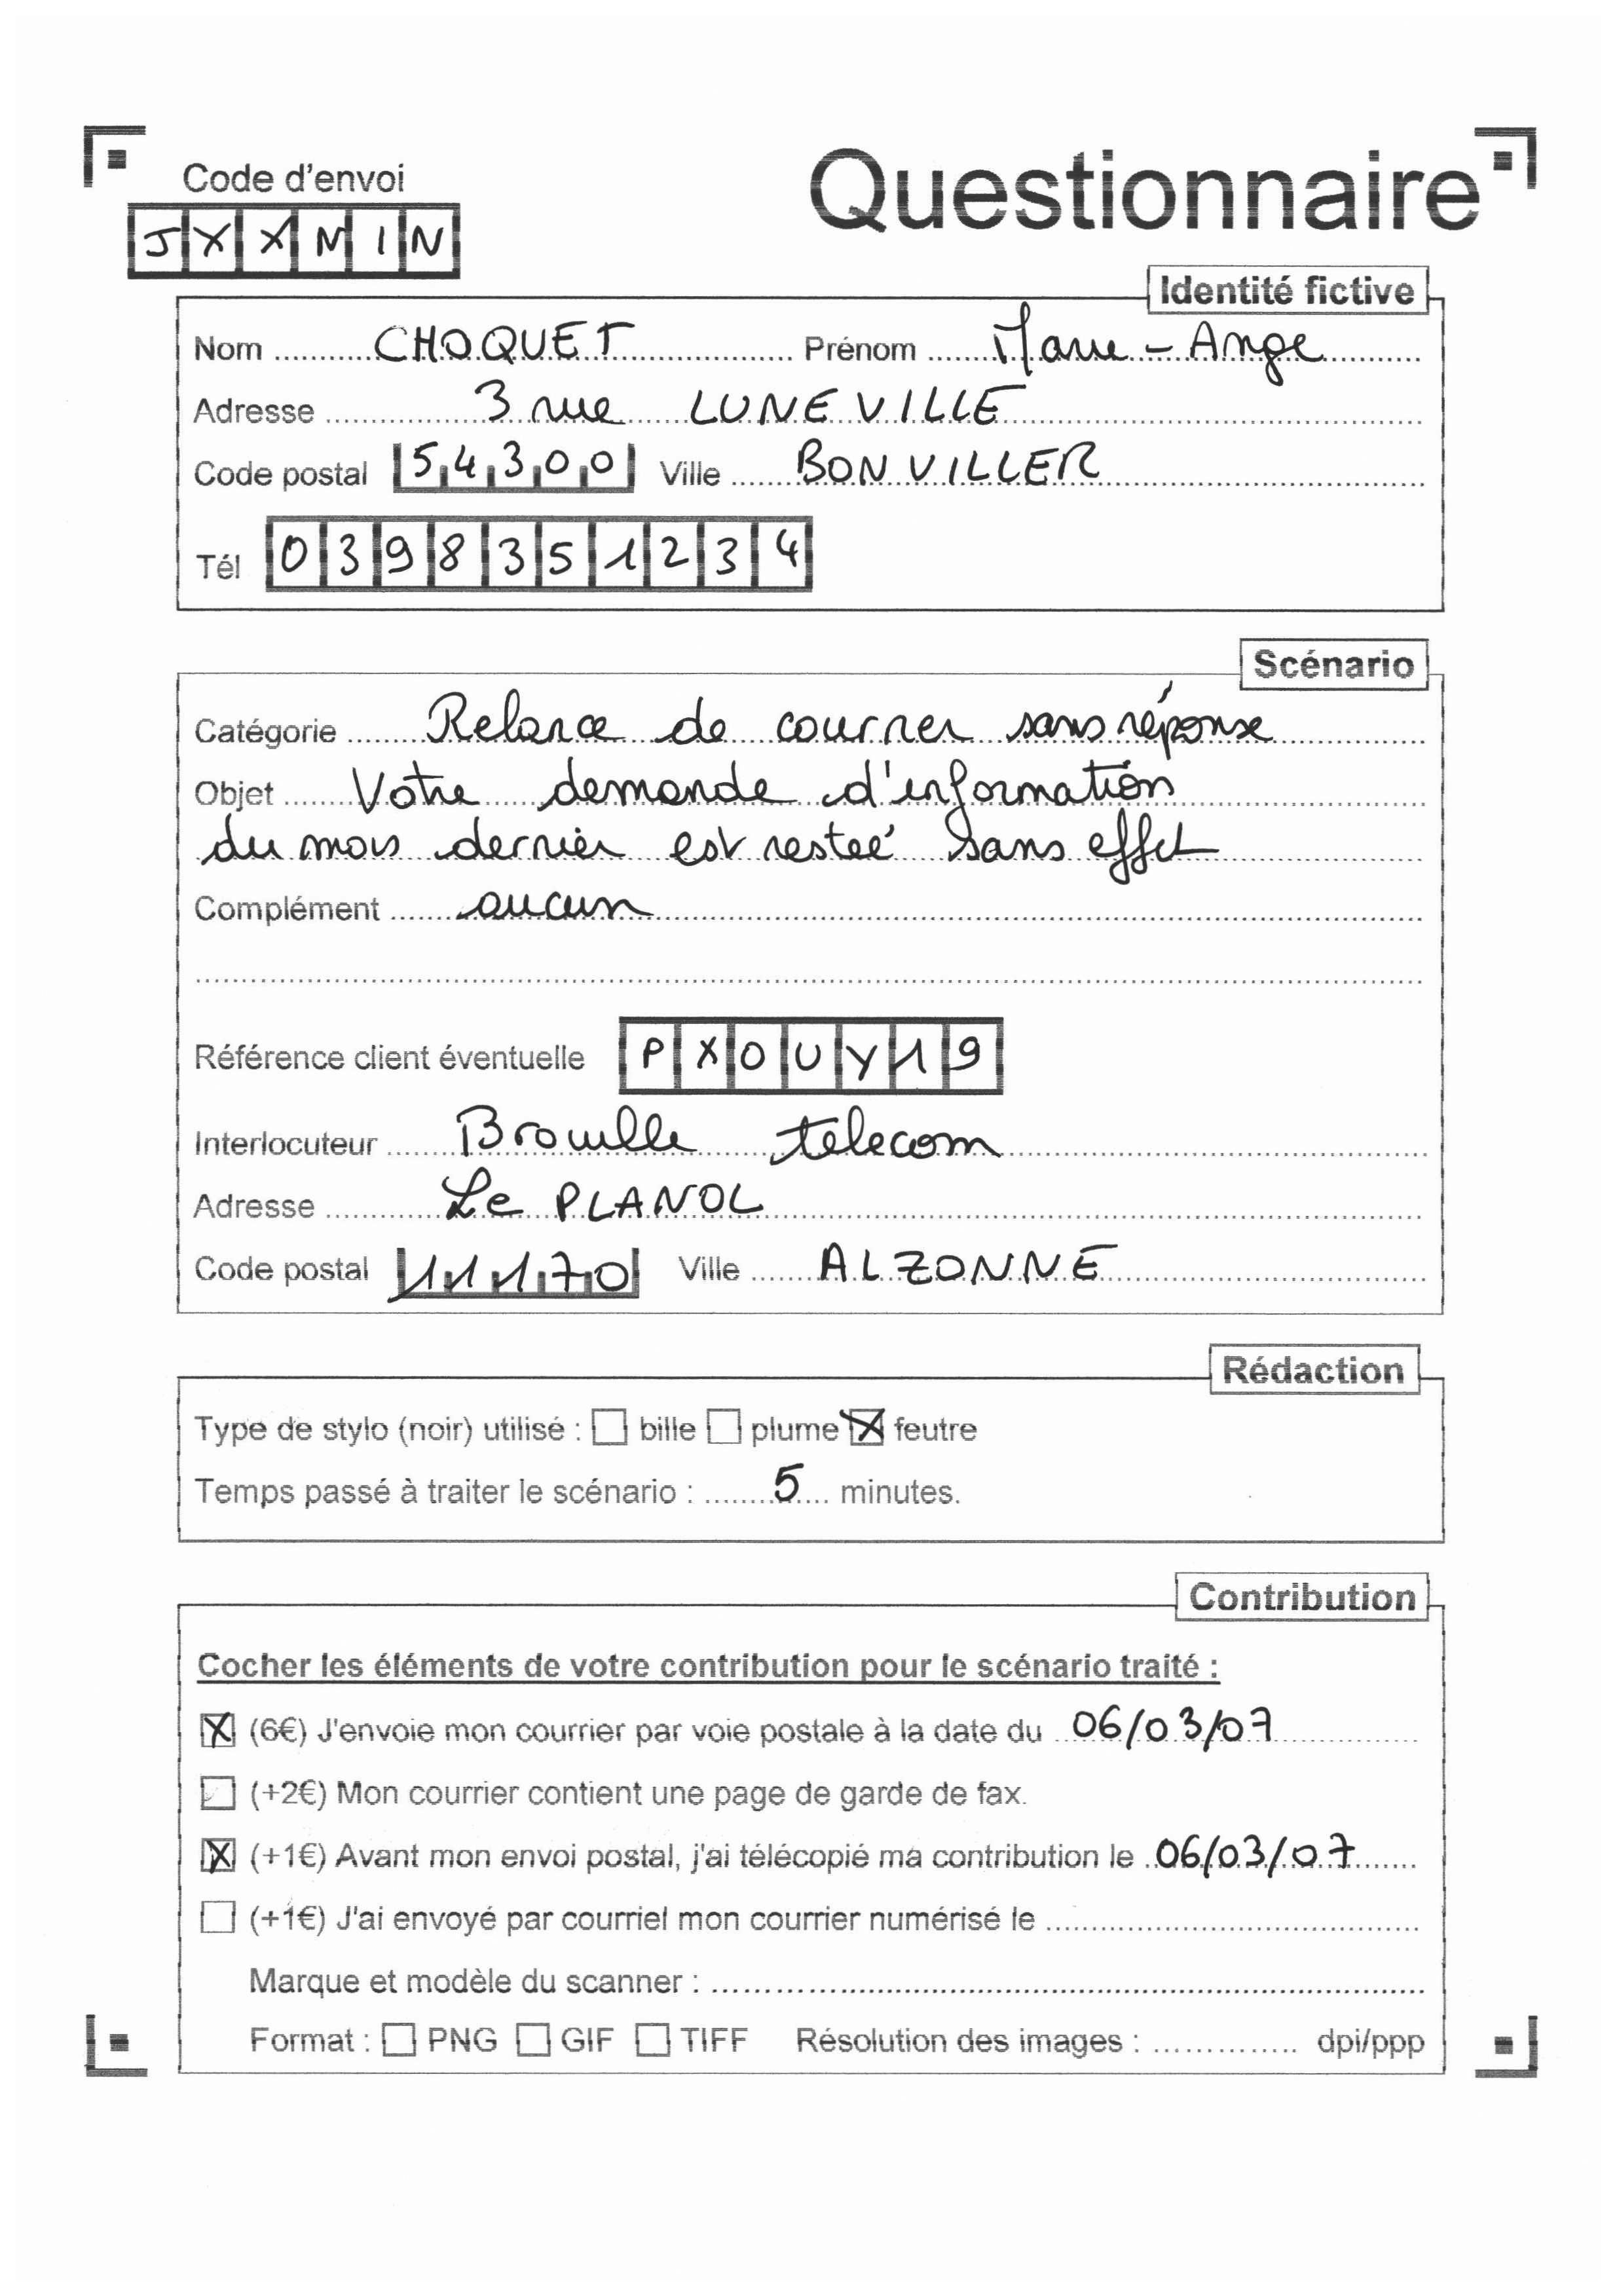 Code d'envoi
JXXMIN
Questionnaire
Identité fictive
Nom CHOQUET Prénom Marie-Ange
Adresse 3 rue LUNEVILLE
Code postal 54300 Ville BONVILLER
Tél 0398351234
Scénario
Catégorie Relance de courrier sans réponse
Objet Votre demande d'information
du mois dernier est resteé sans effet
Complément aucun
Référence client éventuelle PXOUY19
Interlocuteur Brouille telecom
Adresse Le PLANOL
Code postal 11170 Ville ALZONNE
Rédaction
Type de stylo (noir) utilisé : bille plume feutre
Temps passé à traiter le scénario : 5 minutes.
Contribution
Cocher les éléments de votre contribution pour le scénario traité :
(6€) J'envoie mon courrier par voie postale à la date du 06/03/07
(+2€) Mon courrier contient une page de garde de fax.
(+1€) Avant mon envoi postal, j'ai télécopié ma contribution le 06/03/07
(+1€) J'ai envoyé par courriel mon courrier numérisé le
Marque et modèle du scanner :
Format : PNG GIF TIFF Résolution des images : dpi/ppp